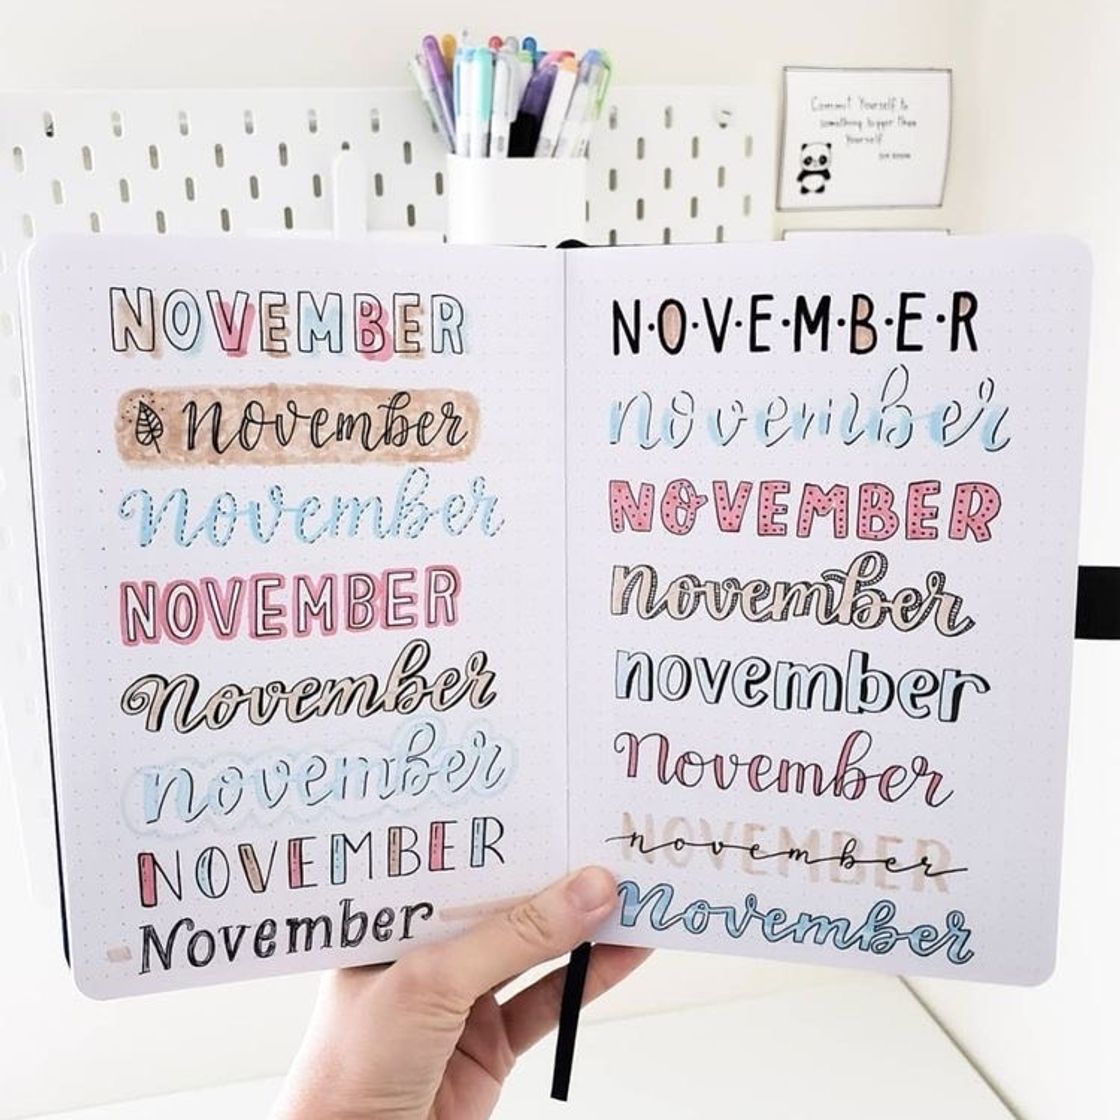 Commit Yourself to
something bigger than
Yourself
NOVEMBER
November
November
NOVEMBER
November
november
NOVEMBER
November
N·O·V·E·M·B·E·R
november
NOVEMBER
november
november
November
NOVEMBER
november
November